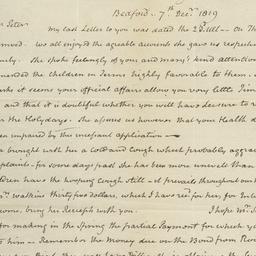 Bedford - 7th Decr. 1819
Dear Peter
My last Letter to you was dated the 2d Ult - On Th
we all enjoyed the agreable accounts she gave us respecti
She spoke feelingly of you and many kind attention
mended the children in Terms highly favorable to them. -
it seems your official affairs allow you very little Time
and that it is doubtful whether you will have Leisure to
the Holydays - She assures us however that your Health
been impaired by the incessant application -
brought with her a Cold and Cough which probably aggra
plaint - for some days past she has been more unwell than
have the hooping Cough still - it prevails throughout our
Watkins thirty five dollars, which I have recd. for her, for Inte
come, bring her Receipt with you. I hope Mr.
for making in the Spring the partial Payment for which y
to him - Remember the Money due on the Bond from